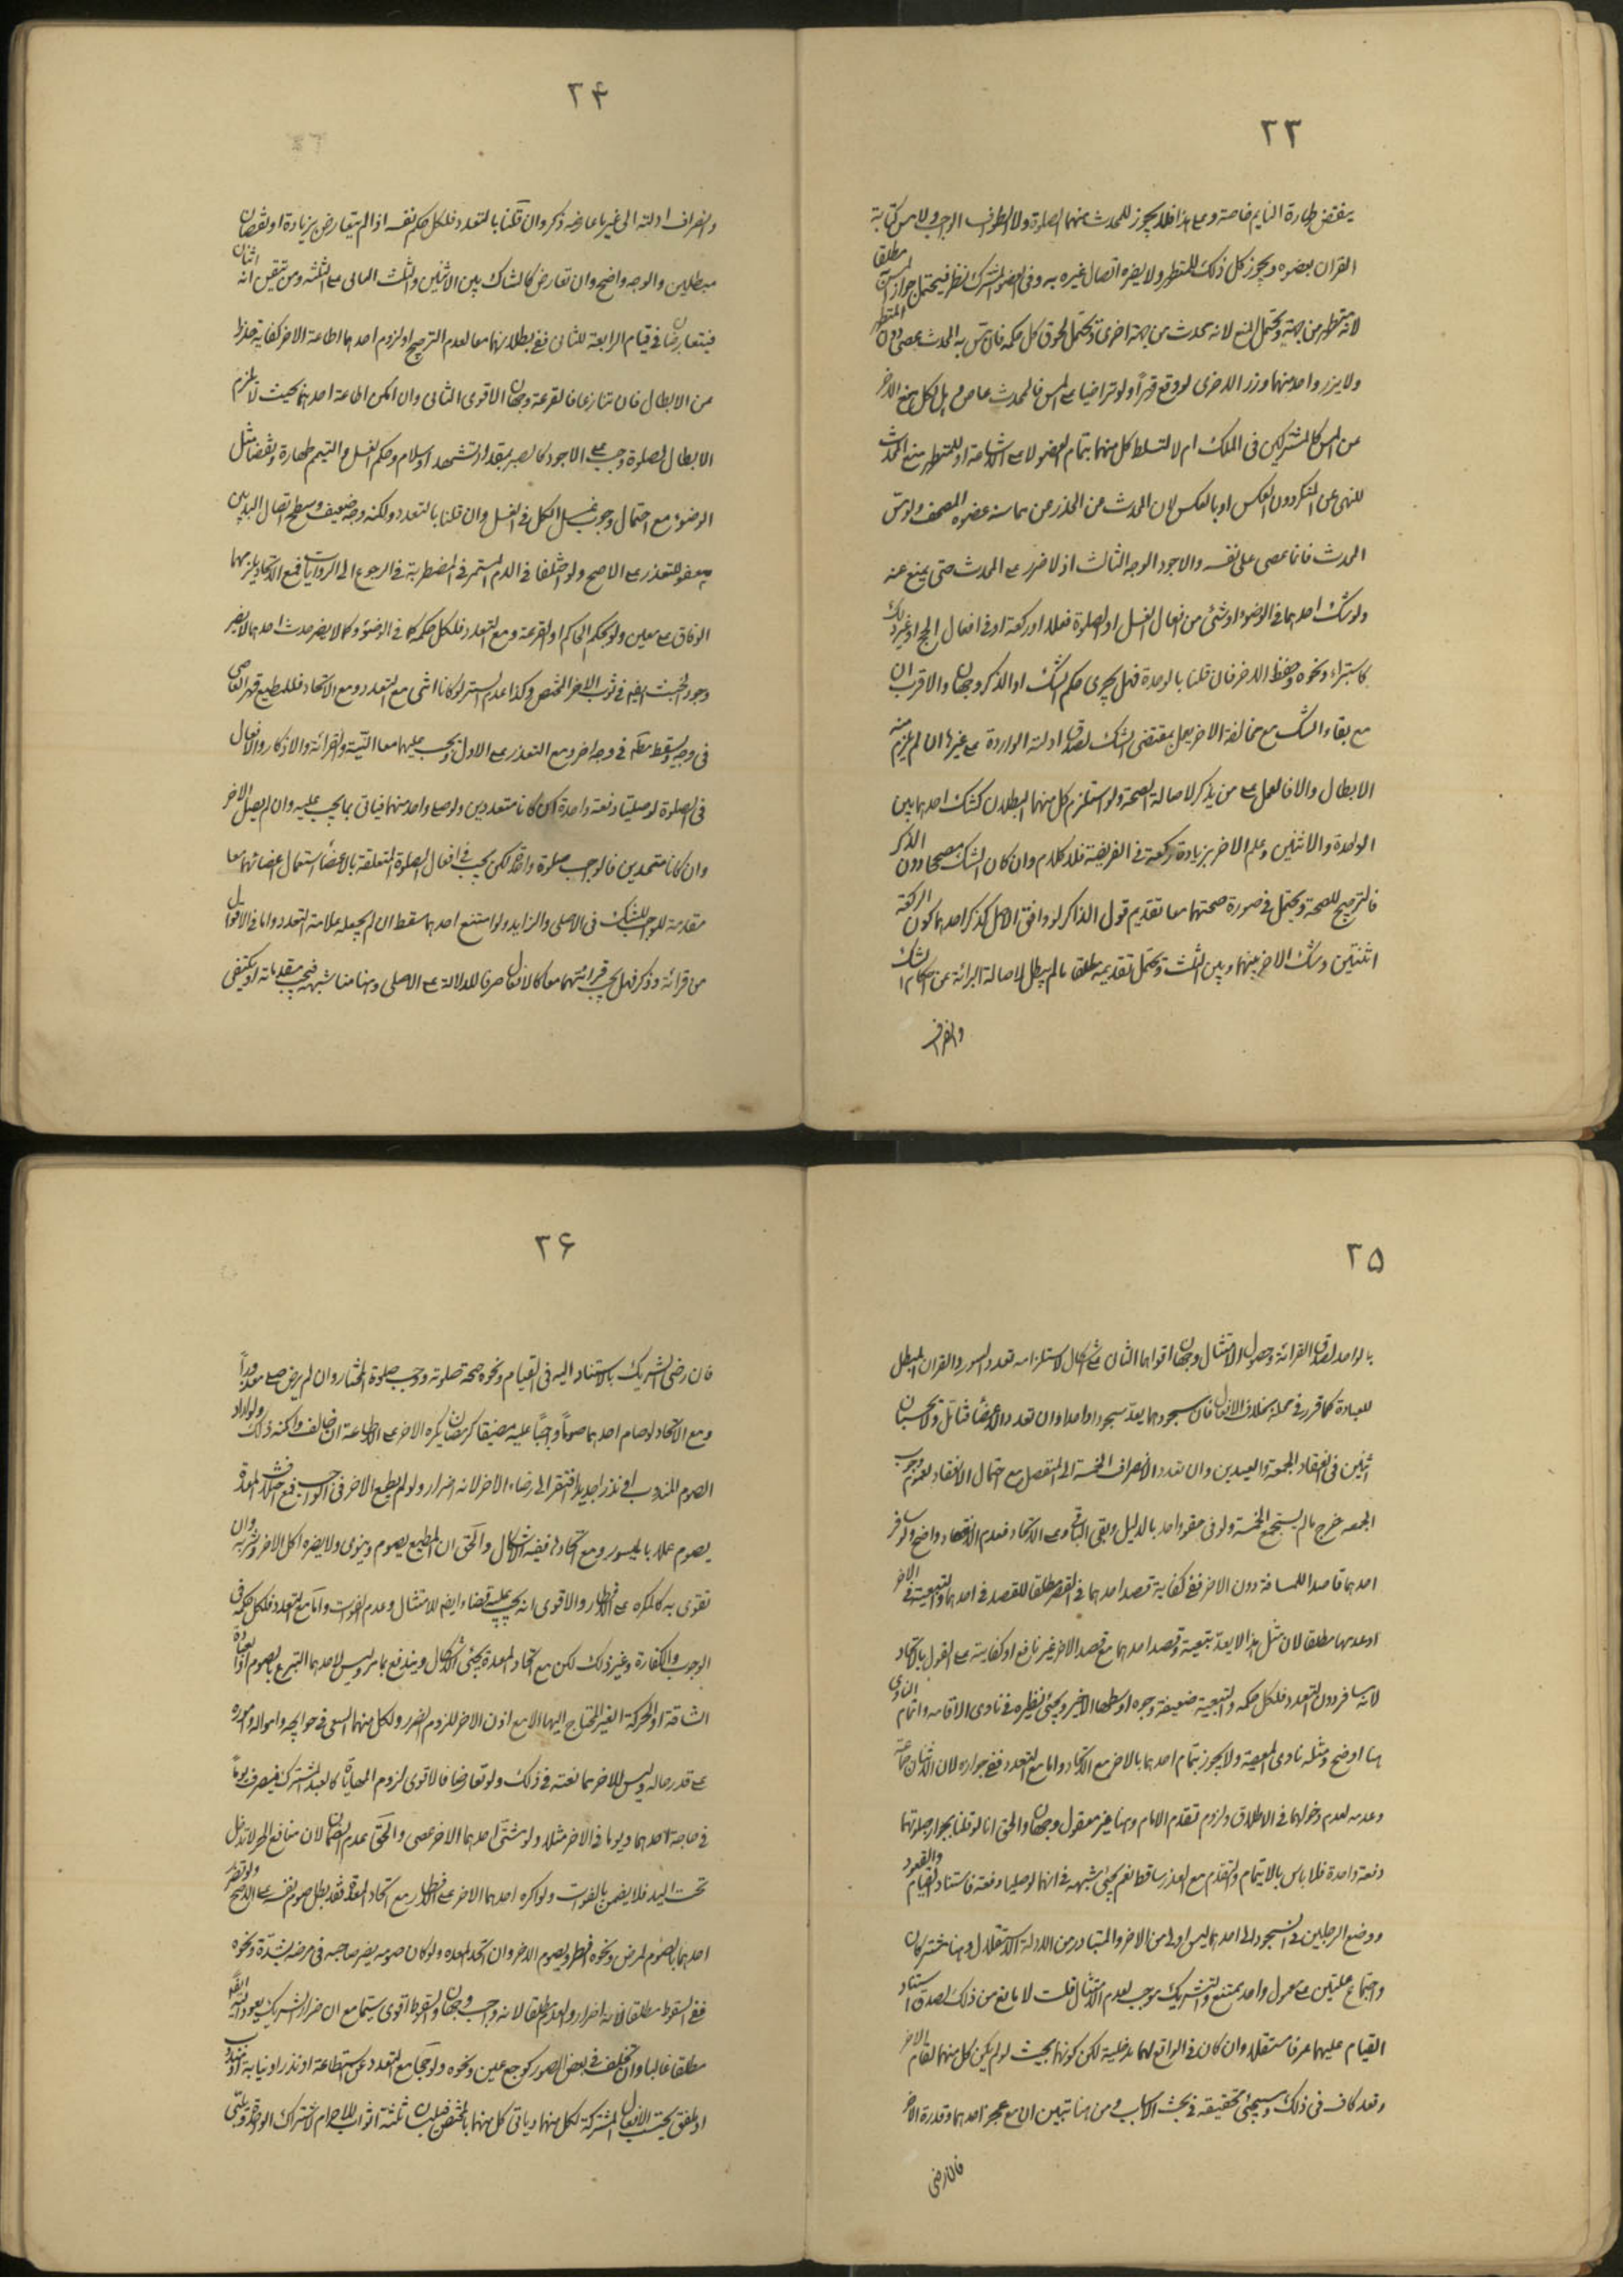 ٢٣
ينقض طهارة النايم خاصة وعلى هذا فلا يجوز للمحدث منهما الصلوة ولا الطواف الواجب ولا مس كتابة
القران بعضوه ويجوز كل ذلك للمتطهر ولا يضره اتصال غيره به وفى العضو المشترك نظر فيحتمل جواز المس مطلقا
لانه متطهر من جهة ويحتمل المنع لانه محدث من جهة اخرى ويحتمل لحوق كل حكمه فان مس به المحدث عصى دون المتطهر
ولا يزر واحد منهما وزر الاخرى لو وقع قهرا ولو تراضيا على المس فالمحدث عاص وهل لكل منع الاخر
من المس كالمشتركين فى الملك ام لا لتسلط كل منهما بتمام العضو لا على الاشاعة او للمتطهر منع المحدث
للنهى عن المنكر دون العكس او بالعكس لان المحدث من الحذر من مماسة عضوه المصحف ولو مس
المحدث فانما عصى على نفسه والاجود الوجه الثالث اذ لا ضرر على المحدث حتى يمنع عنه
ولو شك احدهما فى الوضوء او شئ من افعال الغسل او الصلوة فعلا او ركعة او فى افعال الحج او غير ذلك
كاستبراء ونحوه وحفظ الاخر فان قلنا بالوحدة فهل يجرى حكم الشك او الذكر وجهان والاقرب ان
مع بقاء الشك مع مخالفة الاخر يعمل بمقتضى الشك لصدق ادلته الواردة على غيرها ان لم يلزم منه
الابطال والا فالعمل على من يذكر لاصالة الصحة ولو استلزم كل منهما البطلان كشك احدهما بين
الواحدة والاثنين وعلم الاخر بزيادة ركعة فى الفريضة فلا كلام وان كان الشك مصححا دون الذكر
فالترجيح للصحة ويحتمل فى صورة صحتهما معا تقديم قول الذاكر لو وافق الاصل كذكر احدهما كون الركعة
اثنتين وشك الاخر بينهما وبين الثلث ويحتمل تقديمه مطلقا ما لم يبطل لاصالة البرائة عن احكام الشك
وانصراف
٢۴
وانصراف ادلته الى غير ما عارضه ذكر وان قلنا بالتعدد فلكل حكم نفسه اذا لم يتعارض بزيادة او نقصان
مبطلين والوجه واضح وان تعارض كالشاك بين الاثنين والثلث البانى على الثلثة ومن تيقن انه اثنان
فيتعارضان فى قيام الرابعة للثانى ففى بطلانهما معا لعدم الترجيح او لزوم احدهما اطاعة الاخر كفاية حذرا
من الابطال فان تنازعا فالقرعة وجهان الاقوى الثانى وان امكن اطاعة احدهما بحيث لا يلزم
الابطال لصلوة وجب على الاجود كالصبر بمقدار تشهد او سلام وحكم الغسل والتيمم طهارة ونقضا مثل
الوضوء مع احتمال وجوب غسل الكل فى الغسل وان قلنا بالتعدد ولكنه وجه ضعيف وسطح اتصال البدنين
معفو للتعذر على الاصح ولو اختلفا فى الدم المستمر فى المضطربة فى الرجوع الى الروايات فمع الاتحاد يلزمهما
الوفاق على معين ولو بحكم الحاكم او القرعة ومع التعدد فلكل حكمه كما فى الوضوء وكما لا يضر حدث احدهما لا يضر
وجود الخبث ايضا فى ثوب الاخر المختص وكذا عدم الستر لو كانا انثى مع التعدد ومع الاتحاد فللمطيع قهر العاصى
فى وجه ويسقط حكمه فى وجه اخر ومع التعذر على الاول ويجب عليهما معا النية والقرائة والاذكار والافعال
فى الصلوة لو صليتا دفعة واحدة ان كانا متعددين ولو صلى واحد منهما فياتى بما يجب عليه وان لم يصل الاخر
وان كانا متحدين فالواجب صلوة واحدة لكن يجب فى افعال الصلوة المتعلقة بالاعضاء استعمال اعضائهما معا
مقدمة للواجب للشك فى الاصلى والزايد ولو امتنع احدهما سقط ان لم يجعله علامة التعدد واما فى الاقوال
من قرائة وذكر فهل يجب قرائتهما معا كالافعال صرفا للدلالة على الاصلى وهنا مناشبهة فيجب مقدمة او يكتفى
٢۵
بالواحد لصدق القرائة وحصول الامتثال وجهان اقواهما الثانى على اشكال لاستلزامه تعدد السور والقران المبطل
للعبادة كما قرر فى محله بخلاف الافعال فان سجودهما يعد سجودا واحدا وان تعدد الاعضاء فتامل ولا يحسبان
اثنين فى انعقاد الجمعة والعيدين وان تعددا لانصراف الخمسة الى المنفصل مع احتمال الانعقاد لعموم وجوب
الجمعه خرج ما لم يستجمع الخمسة ولو فى حقو واحد بالدليل وبقى الباقى وعلى الاتحاد فعدم الانعقاد واضح ولو سافر
احدهما قاصدا للمسافة دون الاخر ففى كفاية قصد احدهما فى القصر مطلقا للقصد فى احدهما والتبعية فى الاخر
او عدمها مطلقا لان مثل هذا لا يعد بتبعية وقصد احدهما مع قصد الاخر غير نافع او كفايته على القول بالاتحاد
لانه سافر دون التعدد فلكل حكمه والتبعية ضعيفة وجوه اوسطها الاخير ويجئ نظيره فى ناوى الاقامه واتمام الناوى
هنا اوضح ومثله ناوى المعصية ولا يجوز ايتمام احدهما بالاخر مع الاتحاد واما مع التعدد ففى جوازه لان الاثنان جماعة
وعدمه لعدم دخولهما فى الاطلاق ولزوم تقدم الامام وهنا غير معقول وجهان والحق انا لو قلنا بجواز صلوتهما
دفعة واحدة فلا باس بالايتمام والتقدم مع العذر ساقط نعم يجئ شبهه فى انهما لو صليا دفعة فاستناد القيام والقعود
ووضع الرجلين فى السجود الى احدهما ليس اولى من الاخر والمتبادر من الادلة الاستقلال وهنا مشتركان
واجتماع علتين على معمول واحد ممتنع والتشريك موجب لعدم الامتثال قلت لا مانع من ذلك لصدق استناد
القيام عليهما عرفا مستقلا وان كان فى الواقع لهما مدخلية لكن كونهما بحيث لو لم يكن كل منهما لقام الاخر
وقعد كاف فى ذلك وسيجئ تحقيقه فى بحث الاسباب ومن هنا تبين ان مع عجز احدهما وقدرة الاخر
فان رضى
٢۶
فان رضى الشريك باستناد اليه فى القيام ونحوه صحت صلوته ووجب صلوة المختار وان لم يرض صلى معذورا
ومع الاتحاد لو صام احدهما صوما واجبا عليه مضيقا كرمضان يكره الاخر على الاطاعة ان خالف وامكنه ذلك ولو اراد
الصوم المندوب او نذرا جديدا افتقر الى رضاء الاخر لانه اضرار ولو لم يطع الاخر فى الواجب فمع اختلاف المعدة
يصوم عملا بالميسور ومع اتحادها ففيه الاشكال والحق ان المطيع يصوم وينوى ولا يضره اكل الاخر وشربه وان
تقوى به كالمكره على الافطار والاقوى انه يجب عليه قضاء ايضا للامتثال وعدم الفوات واما مع التعدد فلكل حكمه فى
الوجوب والكفارة وغير ذلك لكن مع اتحاد المعدة يجئ الاشكال ويندفع بما مر وليس لاحدهما التبرع بالصوم او العبادة
الشاقة او الحركة الغير المحتاج اليها الا مع اذن الاخر للزوم الضرر ولكل منهما السعى فى حوايجه وامواله واموره
على قدر حاله وليس للاخر ممانعته فى ذلك ولو تعارضا فالاقوى لزوم المهاياة كالعبد المشترك فيصرف يوما
فى حاجة احدهما ويوما فى الاخر مثلا ولو مشى احدهما الاخر عصى والحق عدم الضمان لان منافع الحر لا تدخل
تحت اليد فلا يضمن بالفوات ولو اكره احدهما الاخر على الافطار مع اتحاد المعدة فقد بطل صوم نفسه على الاصح ولو تضرر
احدهما بالصوم لمرض ونحوه افطر ويصوم الاخر وان اتحد المعده ولو كان صومه يضر صاحبه فى مرضه بشدة ونحوه
ففى السقوط مطلقا لانه اضرار والعدم مطلقا لانه واجب وجهان والسقوط اقوى سيما مع ان ضرار الشريك يعود اليه ايضا
مطلقا غالبا وان تخلف فى بعض الصور كوجع عين ونحوه ولو حجا مع التعدد عن استطاعة او نذر او نيابة او مندوب
او ملفق يحتسب الافعال المشتركة لكل منهما وياتى كل منهما بالمختص فيلبسان ثلثة اثواب للاحرام لاشتراك الواحد